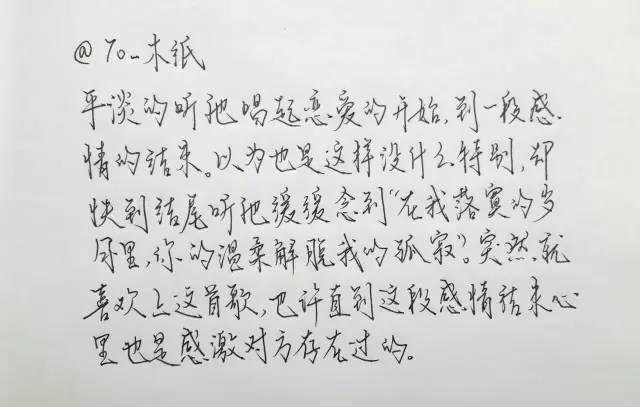 @To_木纸
平淡的听他唱起恋爱的开始,到一段感
情的结束。以为也是这样没什么特别,却
快到结尾听他缓缓念到“在我落寞的岁
月里,你的温柔解脱我的孤寂”。突然就
喜欢上这首歌,也许直到这段感情结束心
里也是感激对方存在过的。